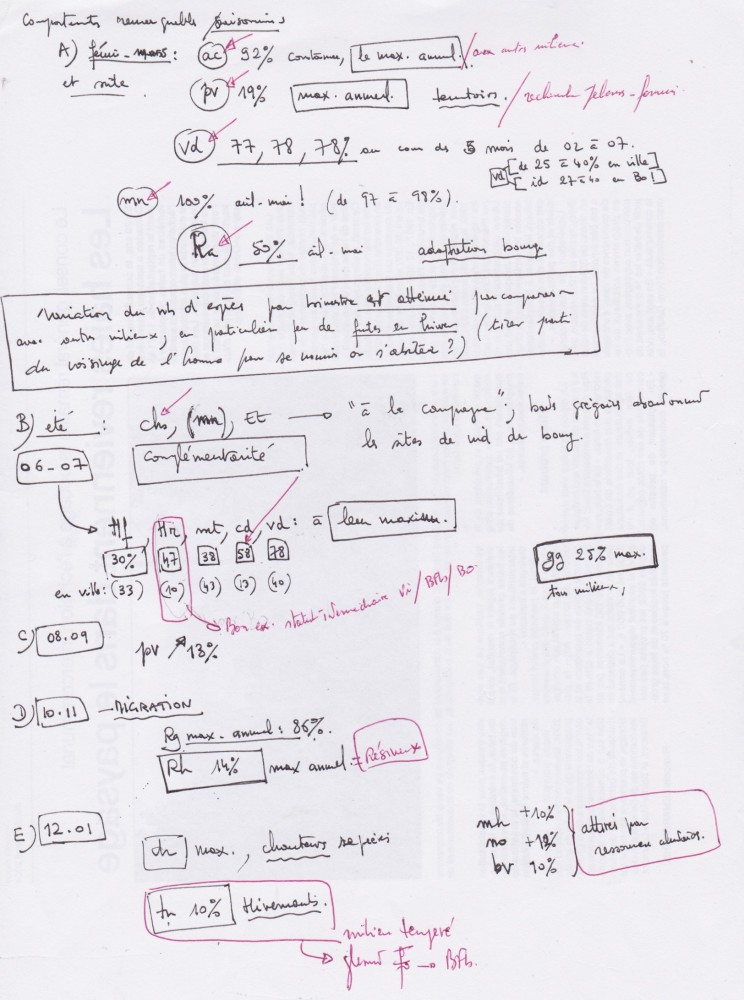 Comportements remarquables / saisonniers
A) févri-mars : ac 92% contacts, le max. annuel. / aux autres milieux.
et suite pv 19% max. annuel. territoires. / recherche
vd 77, 78, 78% au cours des 5 mois de 02 à 07.
vd [de 25 à 40% en ville]
[id 27 à 40 en Bo!]
mn 100% avil-mai! (de 97 à 98%).
Ra 50% avil-mai adaptation bourg
Variation du nb d'espèces par trimestre est atténué par comparaison
avec autres milieux, en particulier peu de fuites en hiver (tirer parti
du voisinage de l'homme pour se nourrir ou s'abriter?)
B) été : cho, (mn), Et → "à la campagne"; grégaires abandonnent
06-07 complémentarité les sites de nid du bourg.
Hf, Hr, mt, cd, vd : à leur maximum.
30% 47 38 58 78 gg 25% max.
en ville: (33) (10) (43) (13) (40) tous milieux,
Bon ex. statut intermédiaire Vi / BPb / BO
C) 08.09 pv ↗ 13%
D) 10.11 - MIGRATION
Rg max. annuel : 86%.
Rh 14% max annuel. = Résineux
E) 12.01 mh +10%
ch max., chanteurs no +12% attirés par
bv 10% ressources
tn 10% Hivernants.
milieu tempéré
→ BPb.